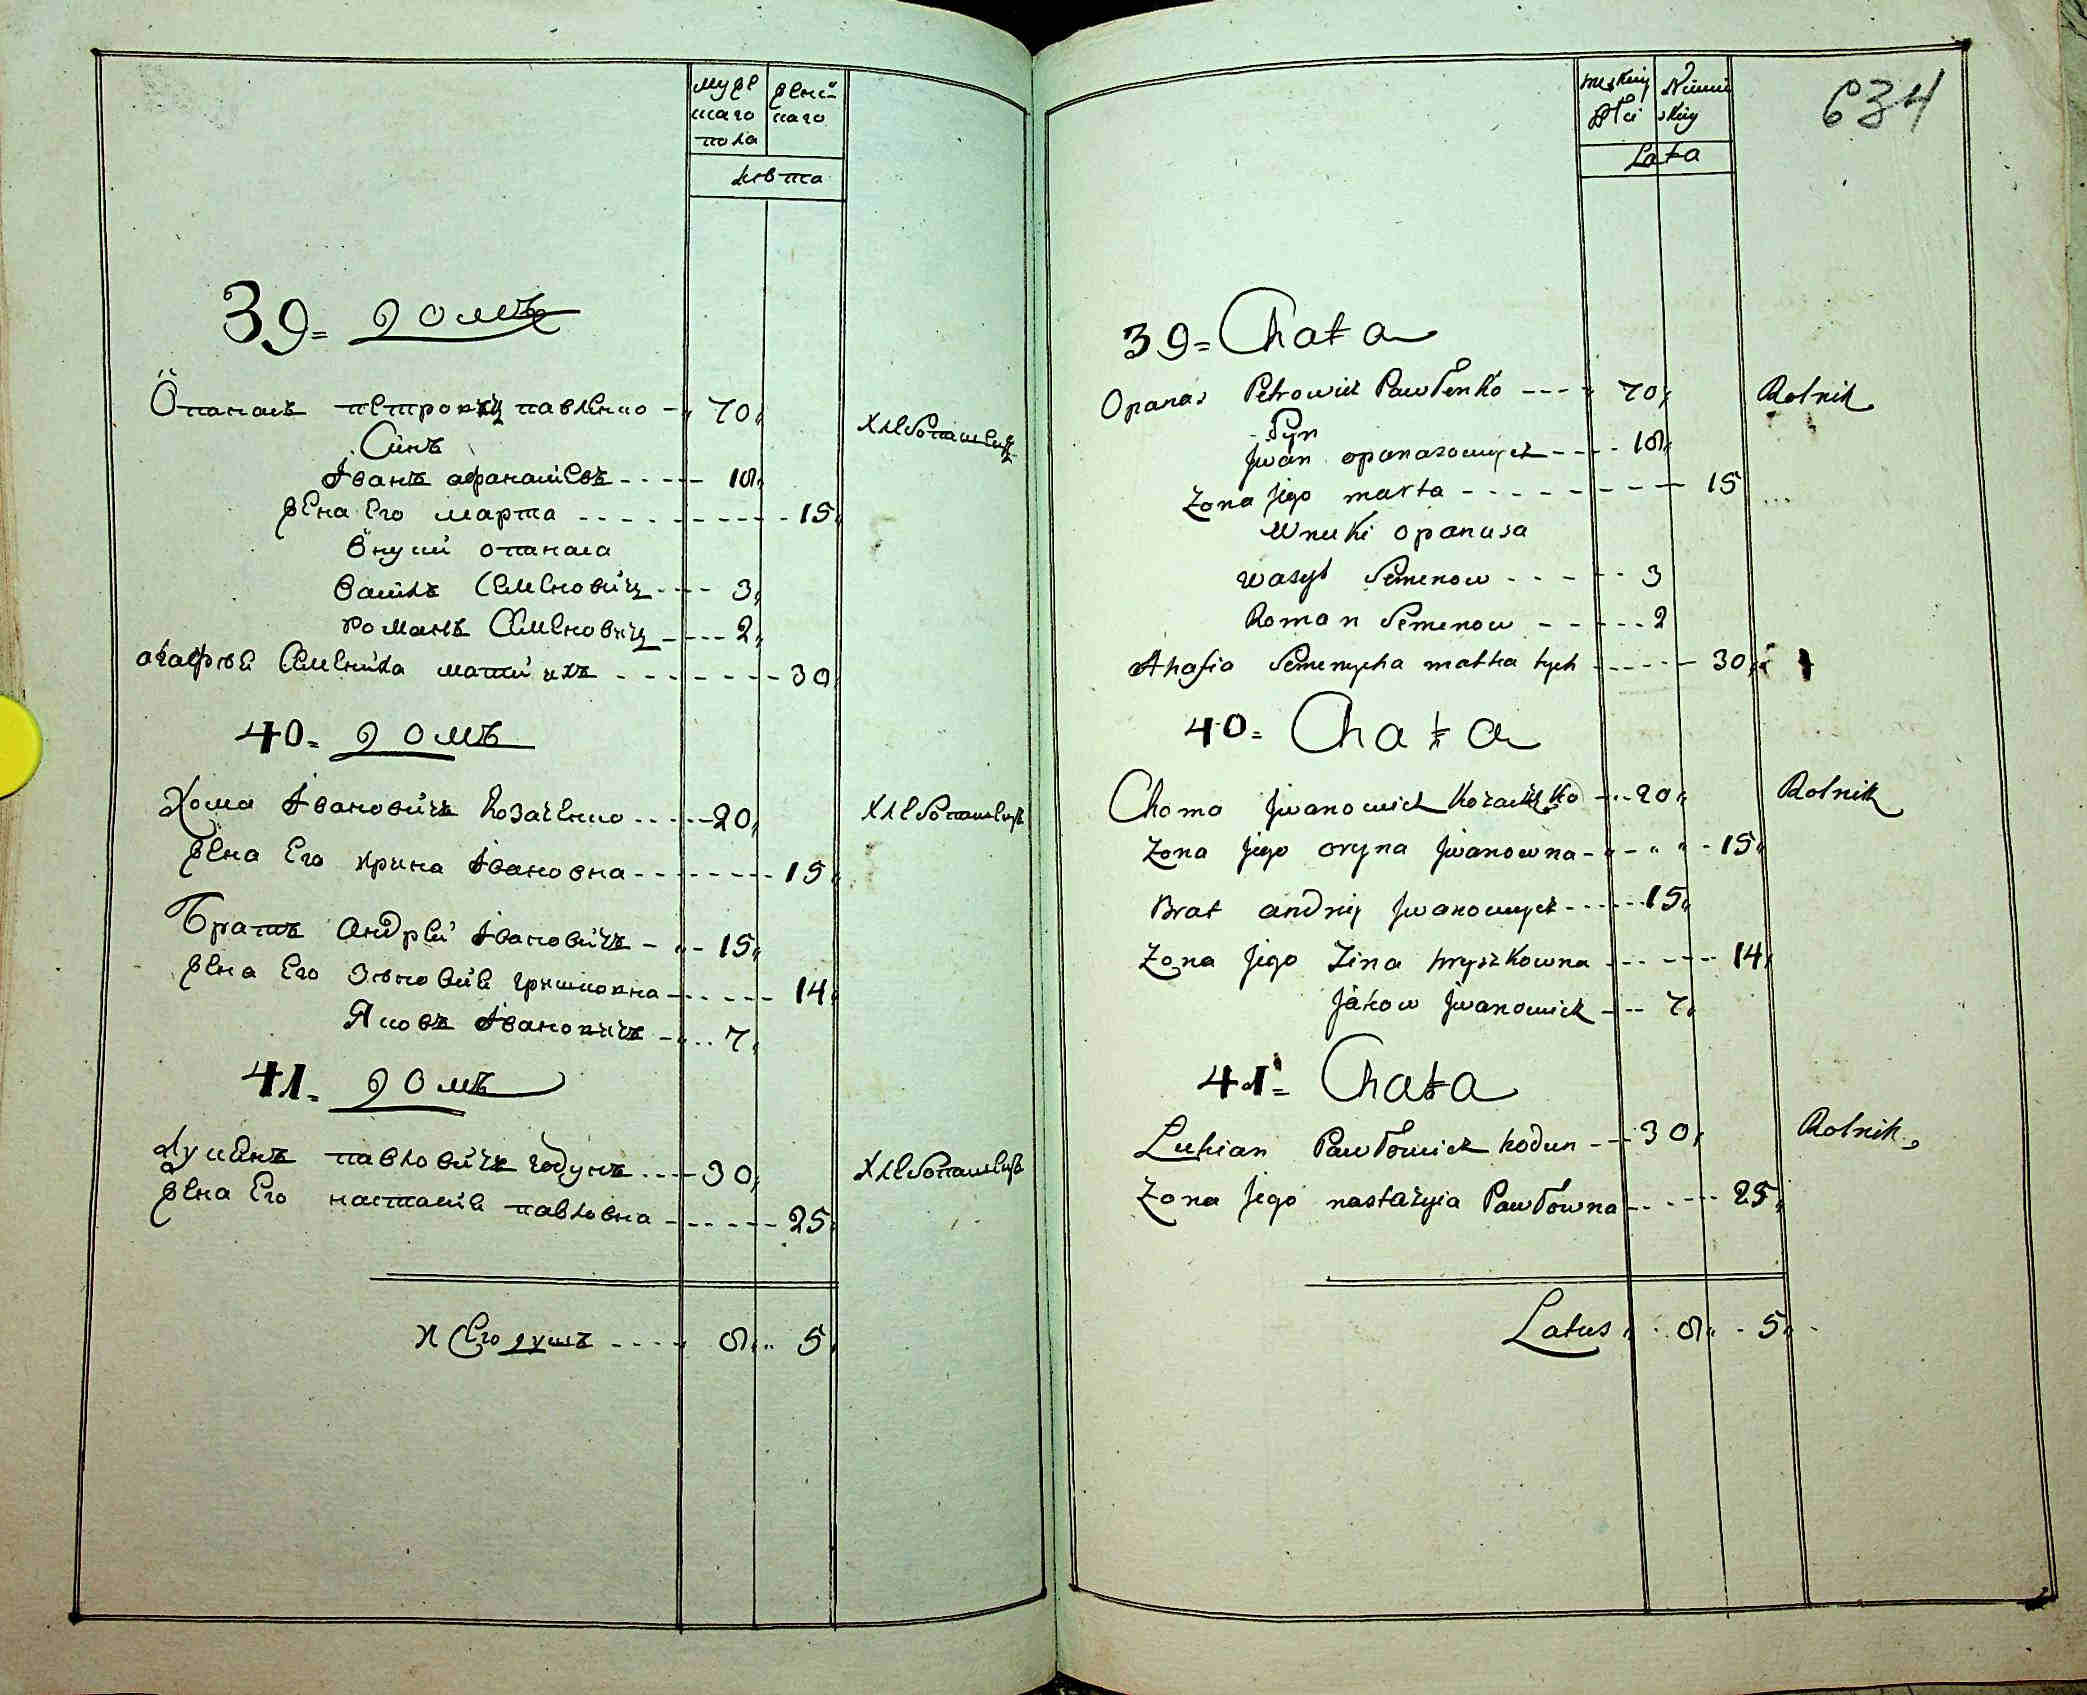 муже
скаго
пола
женс
каго
лѣта
39= домъ
Опанасъ петрович павленко - 70
Синъ
Іванъ афанасіевъ - - - - 18
жена Его марта - - - - - - - - 15
Внуки опанаса
Василь Семенович - - - 3
романъ Семенович - - - - 2
агафія Семениха мати ихъ - - - - - - - 30
Хлебопашец
40= домъ
Хома Івановичъ козаченко - - - - - 20
Хлебопашецъ
жена Его ирина Івановна - - - - - - - - 15
Братъ Андрей Івановичъ - - - 15
жена Его зѣновия гришковна - - - - - - 14
Яковъ Івановичъ - - - 7
41= домъ
лукянъ павловичъ годунъ - - - - 30
Хлебопашецъ
жена Его настасия павловна - - - - - - 25
Всего душъ - - - - 8 - 5
634
męskiej
płci
Niewie
skiej
Lata
39= Chata
Opanas Petrowicz Pawlenko - - - - 70
Rolnik
Syn
Jwan opanasowycz - - - - 18
Zona jego marta - - - - - - - - 15
Wnuki opanasa
wasyl Semenow - - - - - 3
Roman Semenow - - - - - 2
Ahafia Semenycha matka tych - - - - - 30
40= Chata
Choma Jwanowicz kozaczęko - - - 20
Rolnik
Zona jego oryna Jwanowna - - - - - - 15
Brat andrij Jwanowycz - - - - - - 15
Zona jego Zina hryszkowna - - - - - - 14
Jakow Jwanowicz - - - 7
41= Chata
Lukian Pawlowicz hodun - - - 30
Rolnik
Zona jego nastazyia Pawlowna - - - - - - 25
Latus - - 8 - 5